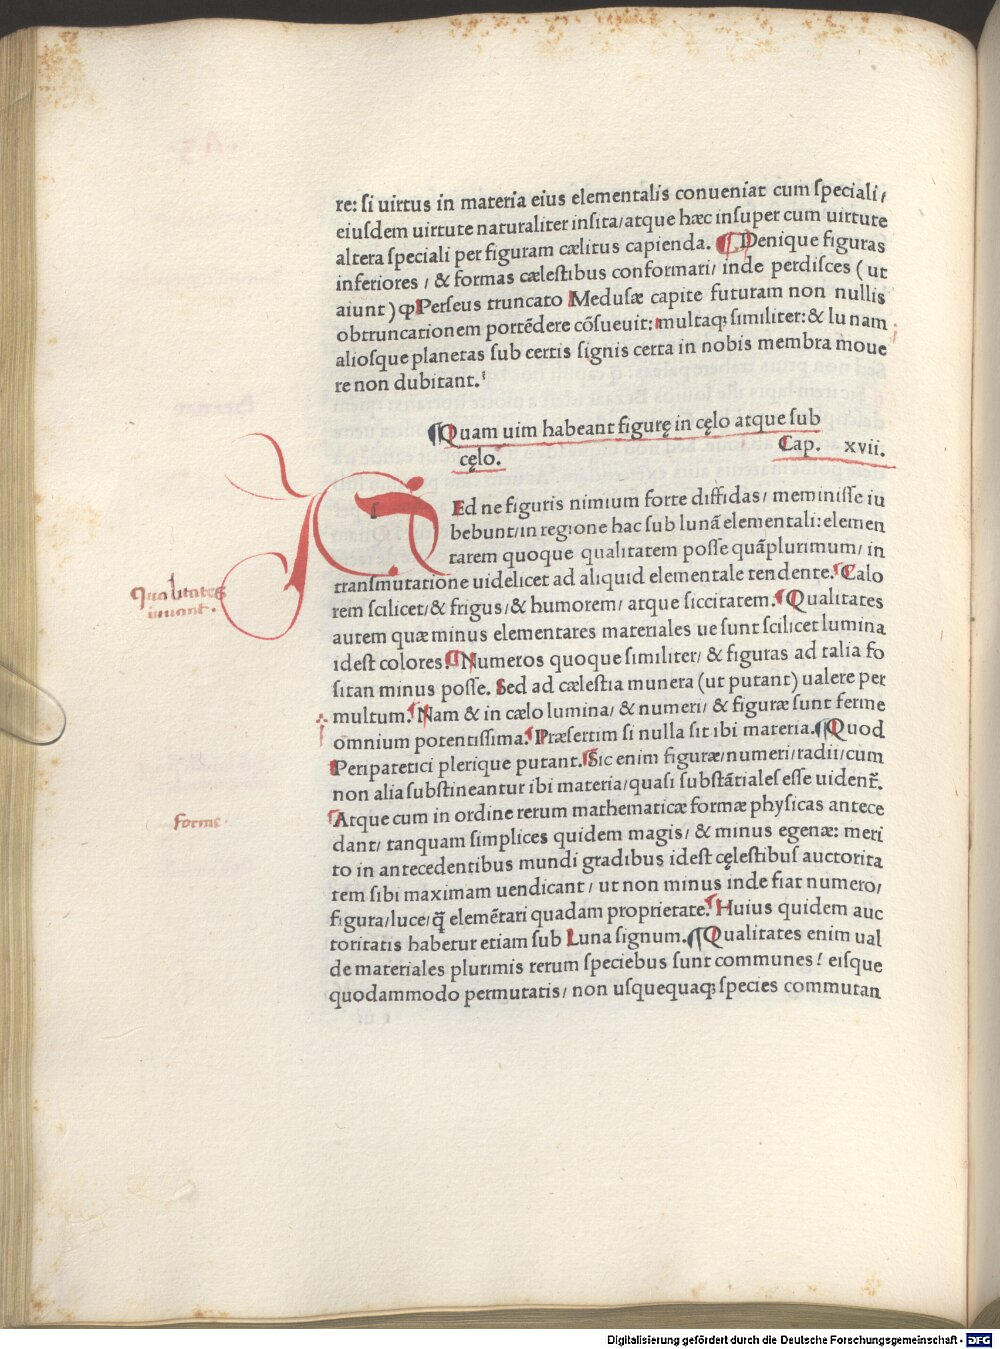 re: ſi uirtus in materia eius elementalis conueniat cum ſpeciali/
eiuſdem uirtute naturaliter inſita/atque hæc inſuper cum uirtute
altera ſpeciali per figuram cælitus capienda. ¶ Denique figuras
inferiores / & formas cæleſtibus conformari/ inde perdiſces ( ut
aiunt ) ꝙ Perſeus truncato Meduſæ capite futuram non nullis
obtruncationem portēdere cōſueuit: multaqꝫ ſimiliter: & lunam
alioſque planetas ſub certis ſignis certa in nobis membra moue
re non dubitant.
¶Quam uim habeant figurę in cęlo atque ſub
cęlo. Cap. xvii.
ſEd ne figuris nimium forte diffidas/ meminiſſe iu
bebunt/in regione hac ſub lunā elementali: elemen
tarem quoque qualitatem poſſe quāplurimum/ in
tranſmutatione uidelicet ad aliquid elementale tendente. Calo
rem ſcilicet/& frigus/& humorem/ atque ſiccitatem. Qualitates
Qualitates
iuuant.
autem quæ minus elementares materiales ue ſunt ſcilicet lumina
ideſt colores. Numeros quoque ſimiliter/ & figuras ad talia fo
ſitan minus poſſe. Sed ad cæleſtia munera (ut putant) ualere per
multum. Nam & in cælo lumina/ & numeri/ & figuræ ſunt ferme
omnium potentiſſima. Præſertim ſi nulla ſit ibi materia. ¶Quod
Peripatetici plerique putant. Sic enim figuræ/numeri/radii/cum
non alia ſubſtineantur ibi materia/quaſi ſubſtātialeſ eſſe uidenť.
Atque cum in ordine rerum mathematicæ formæ phyſicas antece
forme.
dant/ tanquam ſimplices quidem magis/ & minus egenæ: meri
to in antecedentibus mundi gradibus ideſt cęleſtibuſ auctorita
tem ſibi maximam uendicant/ ut non minus inde fiat numero/
figura/luce/q̄ elemētari quadam proprietate. Huius quidem auc
toritatis habetur etiam ſub Luna ſignum. ¶Qualitates enim ual
de materiales plurimis rerum ſpeciebus ſunt communes/ eiſque
quodammodo permutatis/ non uſquequaqꝫ ſpecies commutan
Digitalisierung gefördert durch die Deutsche Forschungsgemeinschaft - DFG